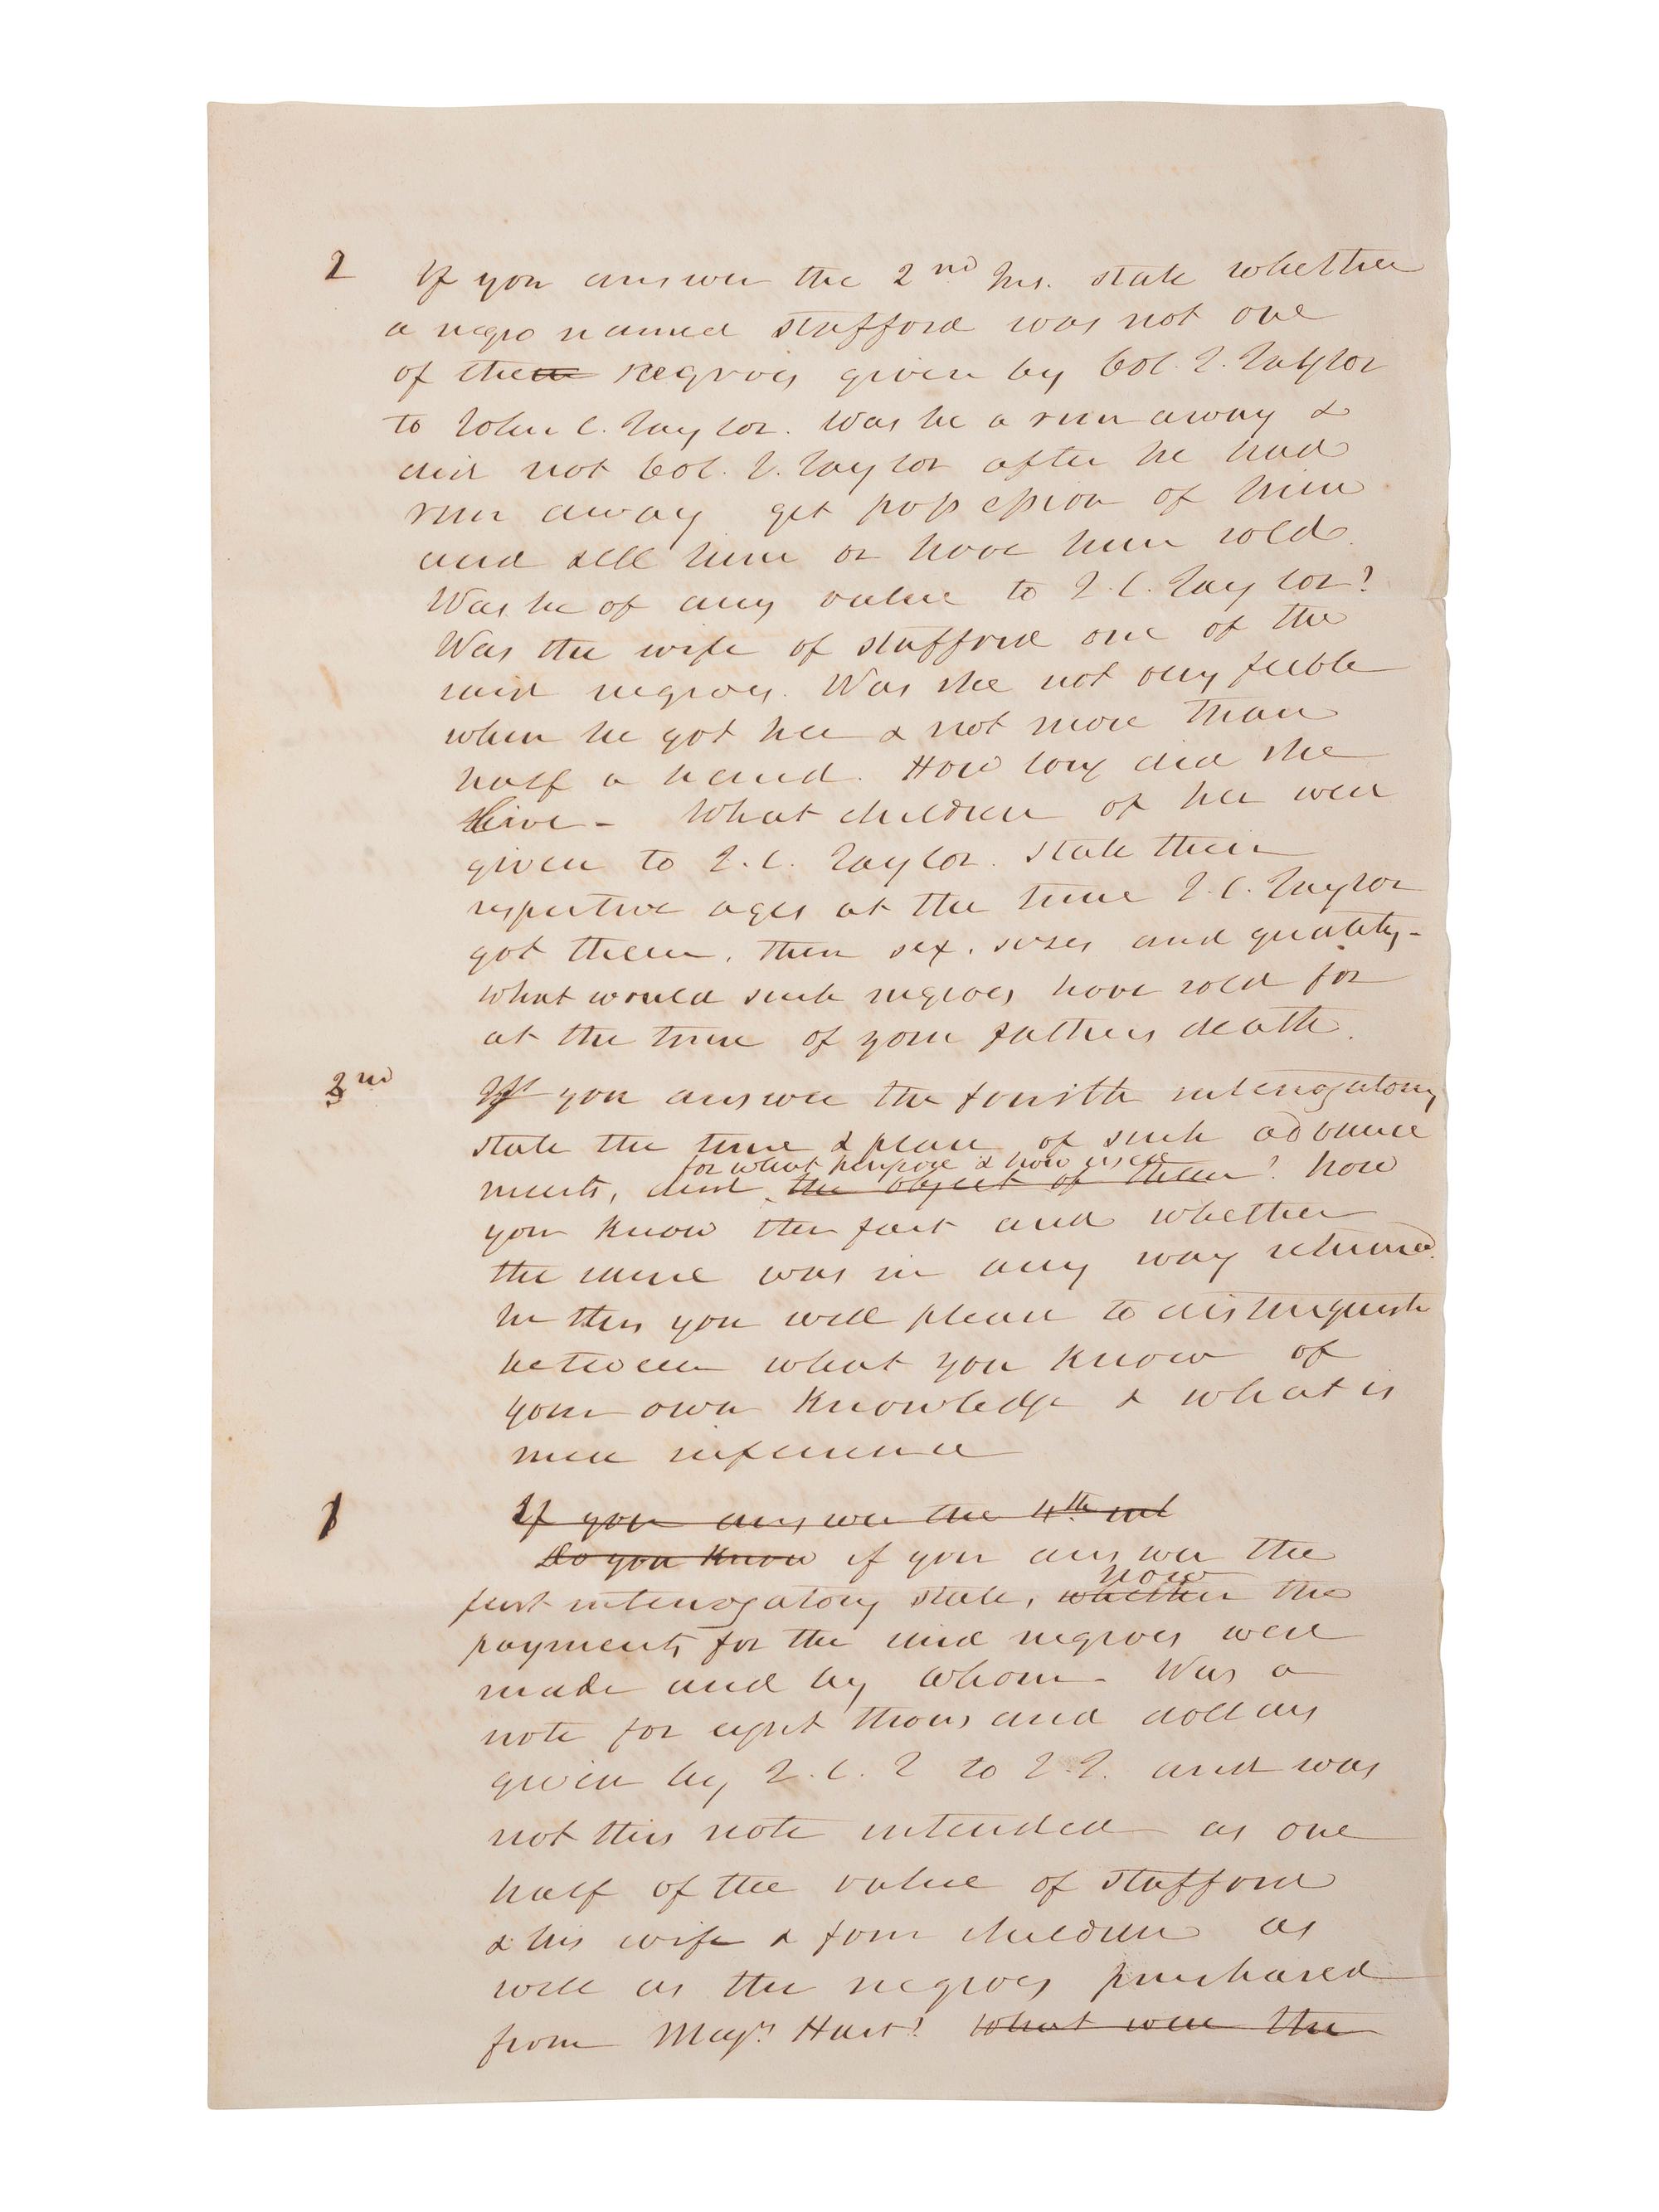 2 If you answer the 2nd Ins. state whether
a negro named Stafford was not one
of them negroes given by Col. J. Taylor
to John C. Taylor. Was he a run away &
did not Col. J. Taylor after he had
run away get possession of him
and sell him or have him sold.
Was he of any value to J. C. Taylor?
Was the wife of Stafford one of the
said negroes. Was she not very feeble
when he got her & not more than
half a hand. How long did she
live - What children of her were
given to J. C. Taylor. State their
respective ages at the time J. C. Taylor
got them, their sex, sizes and quality -
What would such negroes have sold for
at the time of your fathers death.
3nd If you answer the fourth interrogatory
state the time & place of such advance
for what purpose & how used
ments, and the object of them? how
you know the fact and whether
the same was in any way returned.
In this you will please to distinguish
between what you know of
your own knowledge & what is
mere inference
1 If you answer the 4th int
Do you know if you answer the
how
first interrogatory state, whether the
payments for the said negroes were
made and by whom - Was a
note for eight thousand dollars
given by J. C. T to J. T. and was
not this note intended as one
half of the value of Stafford
& his wife & four children as
well as the negroes purchased
from Majr. Hart? What were the